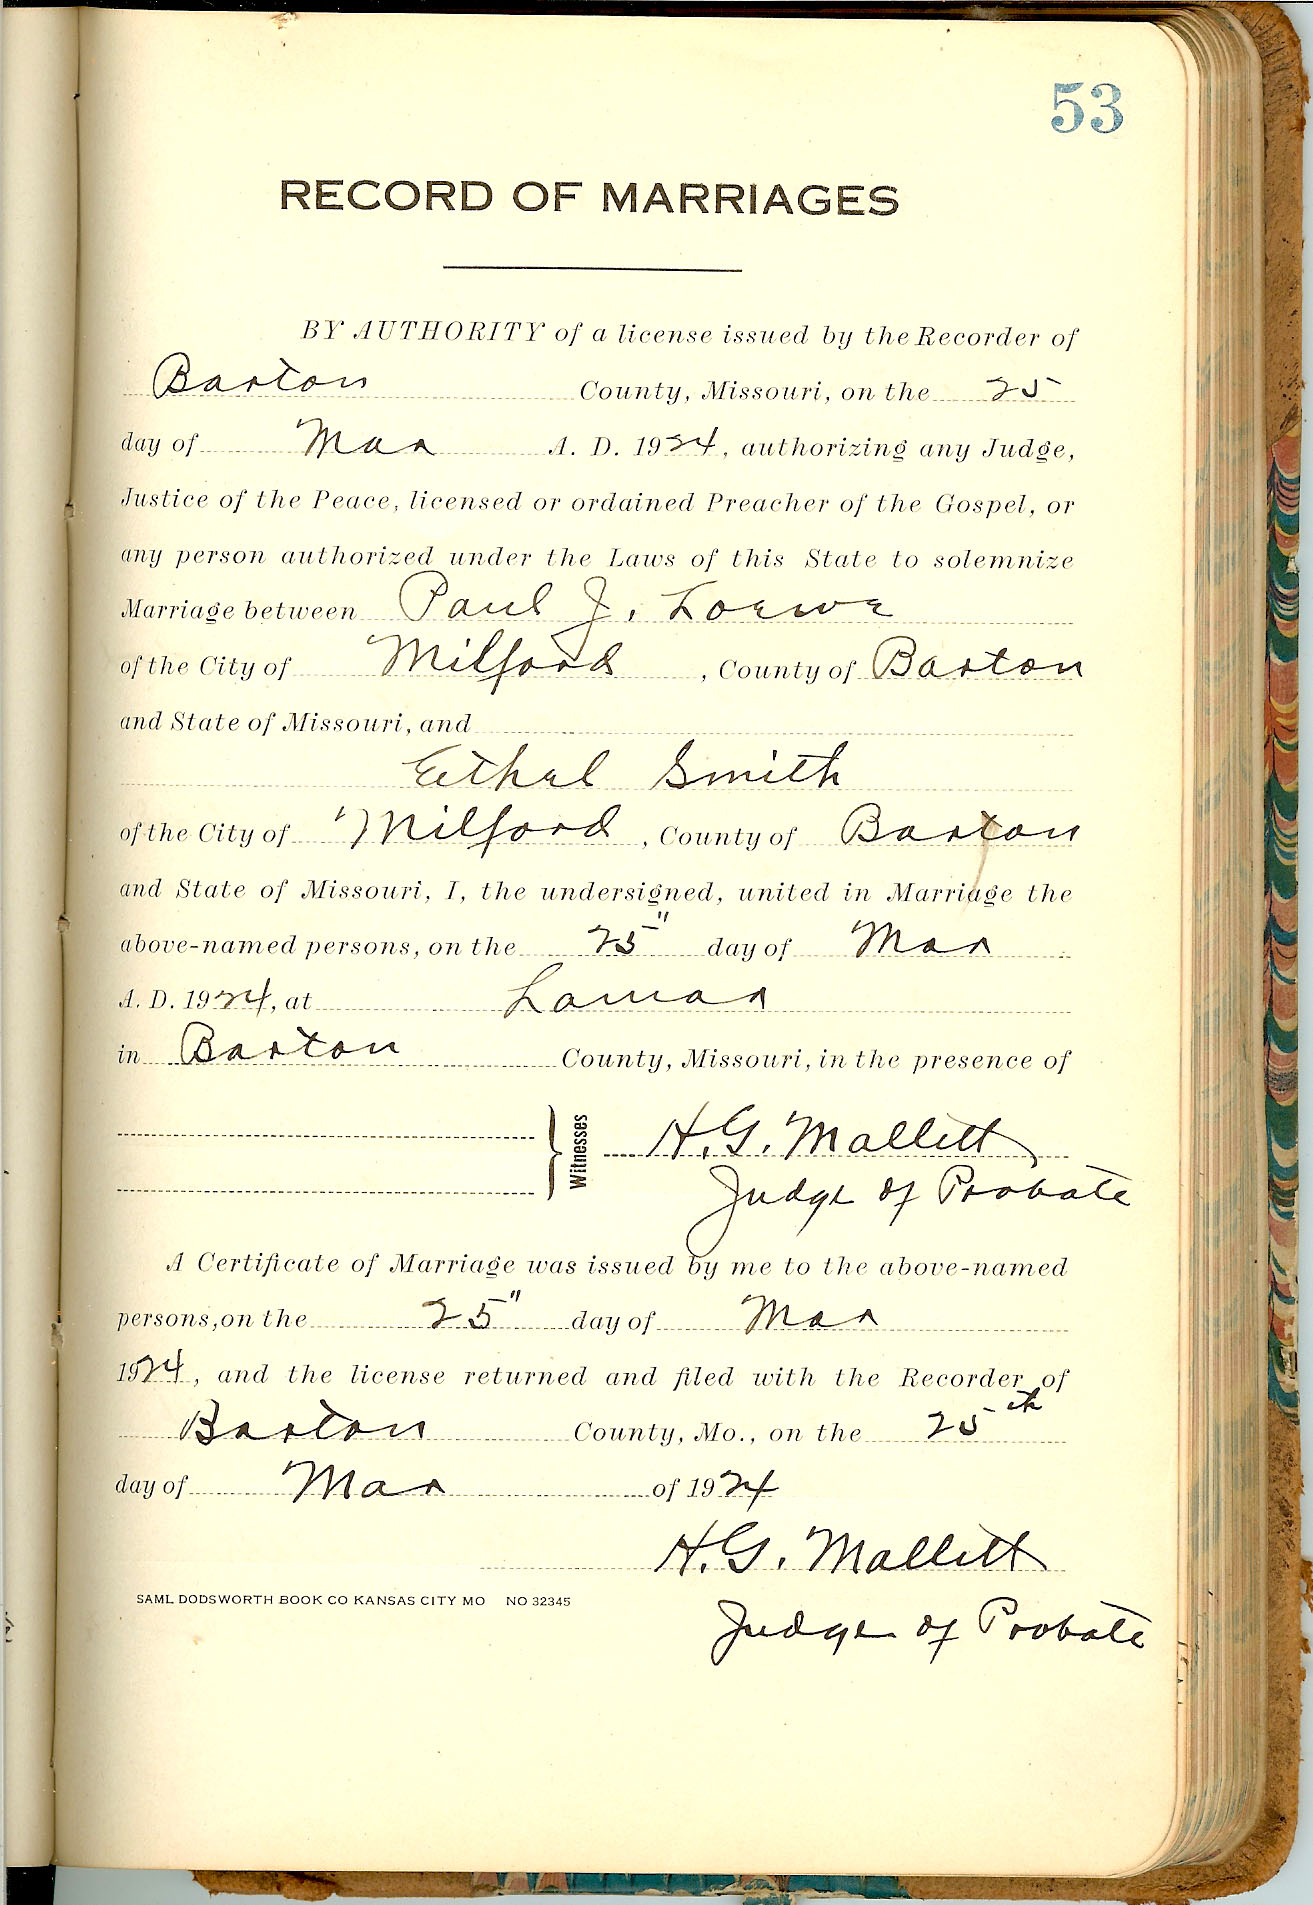 53
RECORD OF MARRIAGES
BY AUTHORITY of a license issued by the Recorder of
Barton County, Missouri, on the 25
day of Mar A. D. 1924, authorizing any Judge,
Justice of the Peace, licensed or ordained Preacher of the Gospel, or
any person authorized under the Laws of this State to solemnize
Marriage between Paul J. Loewe
of the City of Milford, County of Barton
and State of Missouri, and
Ethel Smith
of the City of Milford, County of Barton
and State of Missouri, I, the undersigned, united in Marriage the
above-named persons, on the 25" day of Mar
A. D. 1924, at Lamar
in Barton County, Missouri, in the presence of
Witnesses H. G. Mallett
Judge of Probate
A Certificate of Marriage was issued by me to the above-named
persons, on the 25" day of Mar
1924, and the license returned and filed with the Recorder of
Barton County, Mo., on the 25th
day of Mar of 1924
H. G. Mallett
SAML DODSWORTH BOOK CO KANSAS CITY MO NO 32345
Judge of Probate